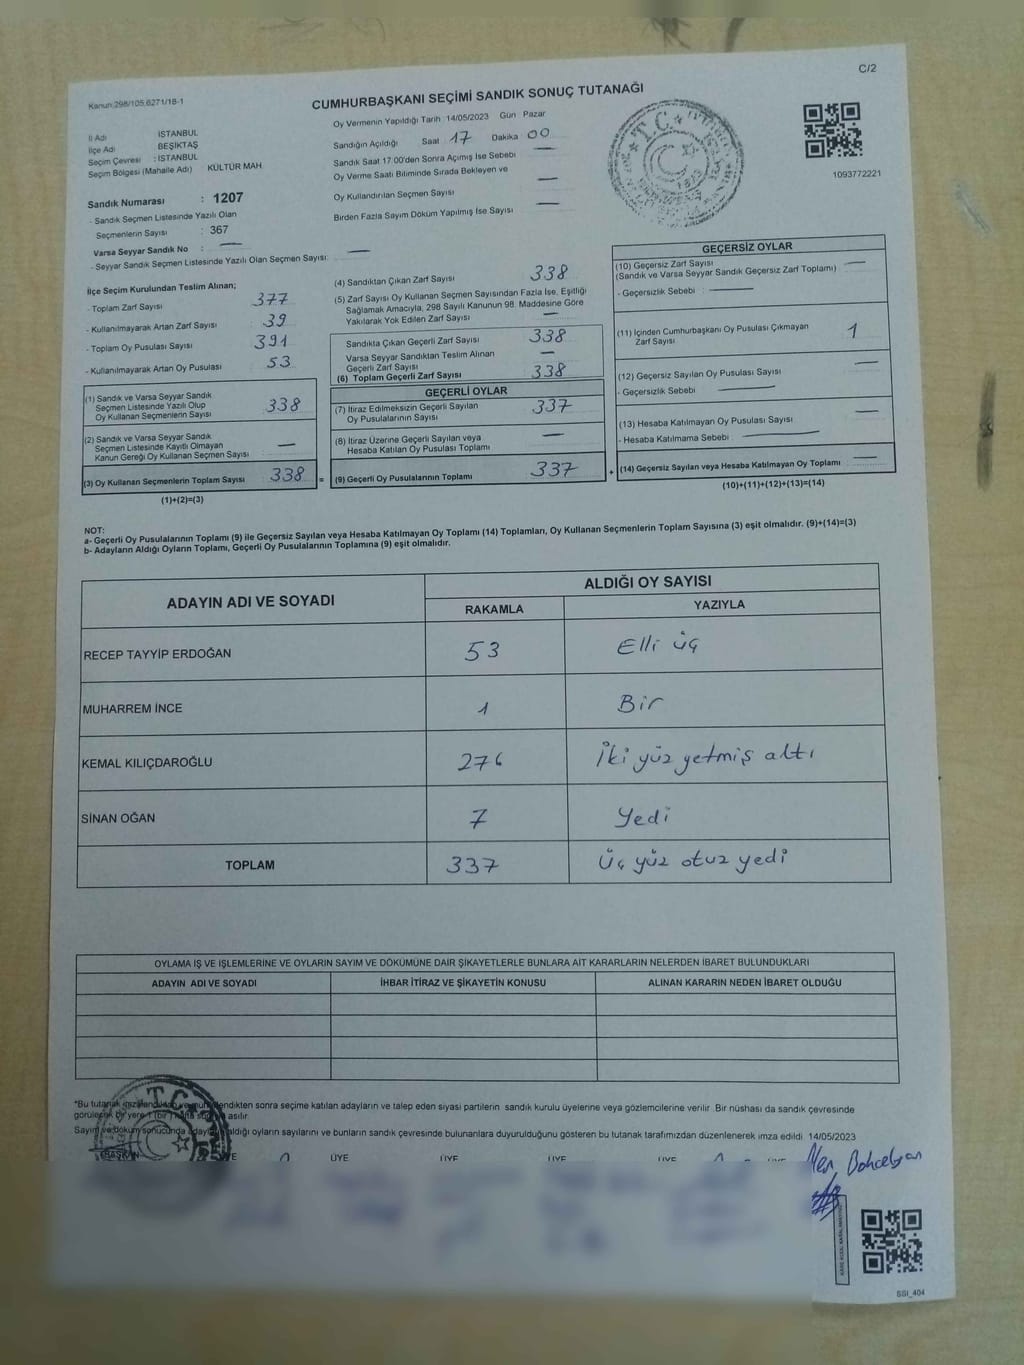 C/2
Kanun:298/105,6271/18-1
CUMHURBAŞKANI SEÇİMİ SANDIK SONUÇ TUTANAĞI
İl Adı İSTANBUL
İlçe Adı BEŞİKTAŞ
Seçim Çevresi : İSTANBUL
Seçim Bölgesi (Mahalle Adı) KÜLTÜR MAH.
Sandık Numarası : 1207
- Sandık Seçmen Listesinde Yazılı Olan
Seçmenlerin Sayısı : 367
Varsa Seyyar Sandık No : —
- Seyyar Sandık Seçmen Listesinde Yazılı Olan Seçmen Sayısı: —
Oy Vermenin Yapıldığı Tarih :14/05/2023 Gün Pazar
Sandığın Açıldığı Saat 17 Dakika 00
Sandık Saat 17:00'den Sonra Açımış İse Sebebi —
Oy Verme Saati Bitiminde Sırada Bekleyen ve
Oy Kullandırılan Seçmen Sayısı —
Birden Fazla Sayım Döküm Yapılmış İse Sayısı —
T.C.
1093772221
İlçe Seçim Kurulundan Teslim Alınan;
- Toplam Zarf Sayısı 377
- Kullanılmayarak Artan Zarf Sayısı 39
- Toplam Oy Pusulası Sayısı 391
- Kullanılmayarak Artan Oy Pusulası 53
(1) Sandık ve Varsa Seyyar Sandık
Seçmen Listesinde Yazılı Olup
Oy Kullanan Seçmenlerin Sayısı 338
(2) Sandık ve Varsa Seyyar Sandık
Seçmen Listesinde Kayıtlı Olmayan
Kanun Gereği Oy Kullanan Seçmen Sayısı —
(3) Oy Kullanan Seçmenlerin Toplam Sayısı 338 =
(1)+(2)=(3)
(4) Sandıktan Çıkan Zarf Sayısı 338
(5) Zarf Sayısı Oy Kullanan Seçmen Sayısından Fazla İse, Eşitliği
Sağlamak Amacıyla, 298 Sayılı Kanunun 98. Maddesine Göre
Yakılarak Yok Edilen Zarf Sayısı —
Sandıkta Çıkan Geçerli Zarf Sayısı 338
Varsa Seyyar Sandıktan Teslim Alınan
Geçerli Zarf Sayısı —
(6) Toplam Geçerli Zarf Sayısı 338
GEÇERLİ OYLAR
(7) İtiraz Edilmeksizin Geçerli Sayılan
Oy Pusulalarının Sayısı 337
(8) İtiraz Üzerine Geçerli Sayılan veya
Hesaba Katılan Oy Pusulası Toplamı —
(9) Geçerli Oy Pusulalarının Toplamı 337 +
GEÇERSİZ OYLAR
(10) Geçersiz Zarf Sayısı —
(Sandık ve Varsa Seyyar Sandık Geçersiz Zarf Toplamı)
- Geçersizlik Sebebi : —
(11) İçinden Cumhurbaşkanı Oy Pusulası Çıkmayan
Zarf Sayısı 1
(12) Geçersiz Sayılan Oy Pusulası Sayısı —
- Geçersizlik Sebebi : —
(13) Hesaba Katılmayan Oy Pusulası Sayısı —
- Hesaba Katılmama Sebebi —
(14) Geçersiz Sayılan veya Hesaba Katılmayan Oy Toplamı —
(10)+(11)+(12)+(13)=(14)
NOT:
a- Geçerli Oy Pusulalarının Toplamı (9) ile Geçersiz Sayılan veya Hesaba Katılmayan Oy Toplamı (14) Toplamları, Oy Kullanan Seçmenlerin Toplam Sayısına (3) eşit olmalıdır. (9)+(14)=(3)
b- Adayların Aldığı Oyların Toplamı, Geçerli Oy Pusulalarının Toplamına (9) eşit olmalıdır.
ADAYIN ADI VE SOYADI ALDIĞI OY SAYISI
RAKAMLA YAZIYLA
RECEP TAYYİP ERDOĞAN 53 Elli üç
MUHARREM İNCE 1 Bir
KEMAL KILIÇDAROĞLU 276 İki yüz yetmiş altı
SİNAN OĞAN 7 Yedi
TOPLAM 337 Üç yüz otuz yedi
OYLAMA İŞ VE İŞLEMLERİNE VE OYLARIN SAYIM VE DÖKÜMÜNE DAİR ŞİKAYETLERLE BUNLARA AİT KARARLARIN NELERDEN İBARET BULUNDUKLARI
ADAYIN ADI VE SOYADI İHBAR İTİRAZ VE ŞİKAYETİN KONUSU ALINAN KARARIN NEDEN İBARET OLDUĞU
*Bu tutanak sonra seçime katılan adayların ve talep eden siyasi partilerin sandık kurulu üyelerine veya gözlemcilerine verilir. Bir nüshası da sandık çevresinde
görülecek bir yere asılır.
Sayım ve döküm sonucunda aldığı oyların sayılarını ve bunların sandık çevresinde bulunanlara duyurulduğunu gösteren bu tutanak tarafımızdan düzenlenerek imza edildi. 14/05/2023
BAŞKAN ÜYE ÜYE ÜYE ÜYE ÜYE
T.C.
SSI_404